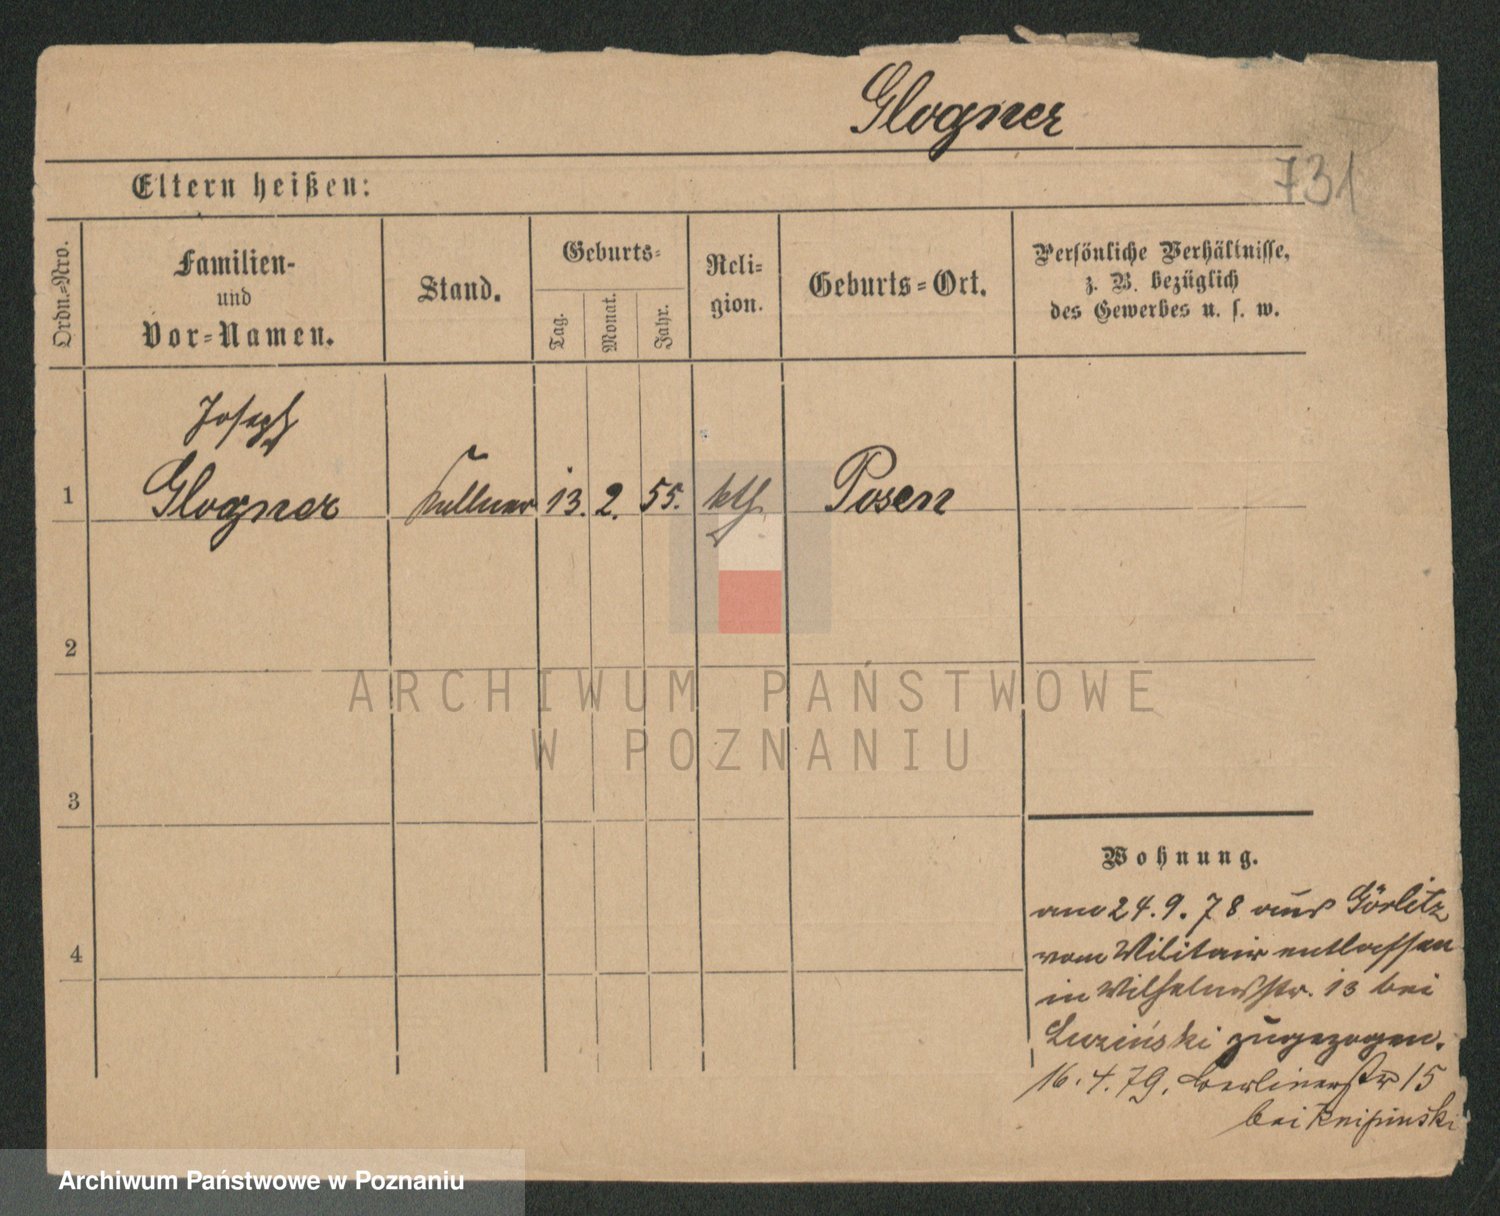 Glogner
731
Eltern heißen:
Ordn.-Nro.
Familien-
und
Vor-Namen.
Stand.
Geburts-
Tag.
Monat.
Jahr.
Reli-
gion.
Geburts-Ort.
Persönliche Verhältnisse,
z. B. bezüglich
des Gewerbes u. s. w.
Joseph
1 Glogner Kellner 13. 2. 55. kth. Posen
2
ARCHIWUM PAŃSTWOWE
W POZNANIU
3
Wohnung.
am 24. 9. 78 aus Görlitz
vom Militair entlassen
4
in Wilhelmsstr. 13 bei
zugezogen.
16. 4. 79. Berlinerstr 15
bei
Archiwum Państwowe w Poznaniu